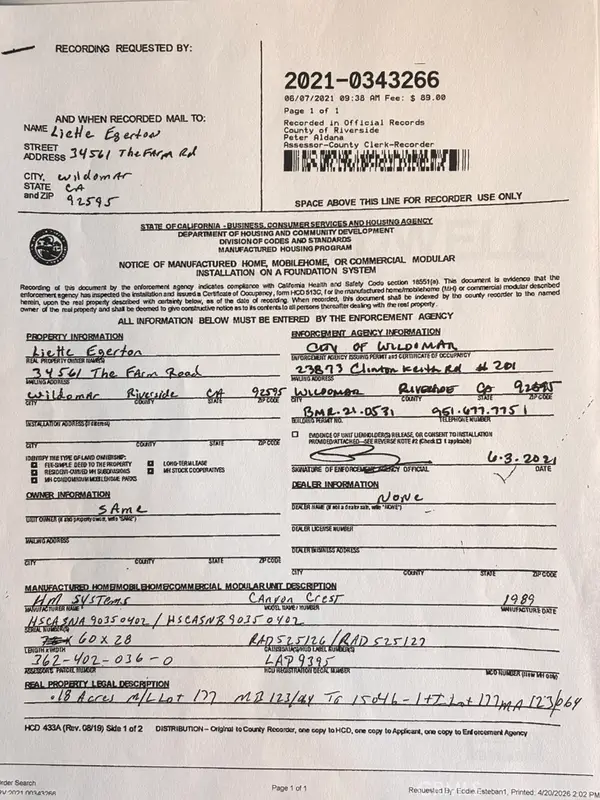 RECORDING REQUESTED BY:
2021-0343266
06/07/2021 09:38 AM Fee: $ 89.00
Page 1 of 1
Recorded in Official Records
County of Riverside
Peter Aldana
Assessor-County Clerk-Recorder
AND WHEN RECORDED MAIL TO:
NAME Liette Egerton
STREET
ADDRESS 34561 The Farm Rd
CITY, Wildomar
STATE CA
and ZIP 92595
SPACE ABOVE THIS LINE FOR RECORDER USE ONLY
STATE OF CALIFORNIA - BUSINESS, CONSUMER SERVICES AND HOUSING AGENCY
DEPARTMENT OF HOUSING AND COMMUNITY DEVELOPMENT
DIVISION OF CODES AND STANDARDS
MANUFACTURED HOUSING PROGRAM
NOTICE OF MANUFACTURED HOME, MOBILEHOME, OR COMMERCIAL MODULAR
INSTALLATION ON A FOUNDATION SYSTEM
Recording of this document by the enforcement agency indicates compliance with California Health and Safety Code section 18551(a). This document is evidence that the
enforcement agency has inspected the installation and issued a Certificate of Occupancy, form HCD 513C, for the manufactured home/mobilehome (MH) or commercial modular described
herein, upon the real property described with certainty below, as of the date of recording. When recorded, this document shall be indexed by the county recorder to the named
owner of the real property and shall be deemed to give constructive notice as to its contents to all persons thereafter dealing with the real property.
ALL INFORMATION BELOW MUST BE ENTERED BY THE ENFORCEMENT AGENCY
PROPERTY INFORMATION
Liette Egerton
REAL PROPERTY OWNER NAME(S)
34561 The FArm Road
MAILING ADDRESS
Wildomar Riverside CA 92595
CITY COUNTY STATE ZIP CODE
INSTALLATION ADDRESS (if different)
CITY COUNTY STATE ZIP CODE
IDENTIFY THE TYPE OF LAND OWNERSHIP:
FEE-SIMPLE DEED TO THE PROPERTY LONG-TERM LEASE
RESIDENT-OWNED MH SUBDIVISIONS MH STOCK COOPERATIVES
MH CONDOMINIUM MOBILEHOME PARKS
ENFORCEMENT AGENCY INFORMATION
CITY OF WILDOMAR
ENFORCEMENT AGENCY ISSUING PERMIT and CERTIFICATE OF OCCUPANCY
23873 Clinton Keith Rd # 201
MAILING ADDRESS
WILDOMAR RIVERSIDE CA 92595
CITY COUNTY STATE ZIP CODE
BMR-21-0531 951.677.7751
BUILDING PERMIT NO. TELEPHONE NUMBER
EVIDENCE OF UNIT LIENHOLDER(S) RELEASE, OR CONSENT TO INSTALLATION
PROVIDED/ATTACHED—SEE REVERSE NOTE #2 (Check if applicable)
6.3.2021
SIGNATURE OF ENFORCEMENT AGENCY OFFICIAL DATE
OWNER INFORMATION
SAme
UNIT OWNER (if also property owner, write "SAME")
MAILING ADDRESS
CITY COUNTY STATE ZIP CODE
DEALER INFORMATION
NONE
DEALER NAME (if not a dealer sale, write "NONE")
DEALER LICENSE NUMBER
DEALER BUSINESS ADDRESS
CITY COUNTY STATE ZIP CODE
MANUFACTURED HOME/MOBILEHOME/COMMERCIAL MODULAR UNIT DESCRIPTION
HM SYSTEMS Canyon Crest 1989
MANUFACTURER NAME MODEL NAME / NUMBER MANUFACTURE DATE
HSCASNA90350402 / HSCASNB90350402
SERIAL NUMBER(S)
60 x 28 RAD525126 / RAD 525127
LENGTH X WIDTH CA INSIGNIA/HUD LABEL NUMBER(S)
362-402-036-0 LAP9395
ASSESSORS PARCEL NUMBER HCD REGISTRATION DECAL NUMBER MCO NUMBER (New MH Only)
REAL PROPERTY LEGAL DESCRIPTION
.18 Acres M/L Lot 177 MB 123/064 Tr 15046-1 + I Lot 177 MA 123/064
HCD 433A (Rev. 08/19) Side 1 of 2 DISTRIBUTION – Original to County Recorder, one copy to HCD, one copy to Applicant, one copy to Enforcement Agency
Order Search
2021 00343266
Page 1 of 1
Requested By: Eddie Esteban1, Printed: 4/20/2026 2:02 PM